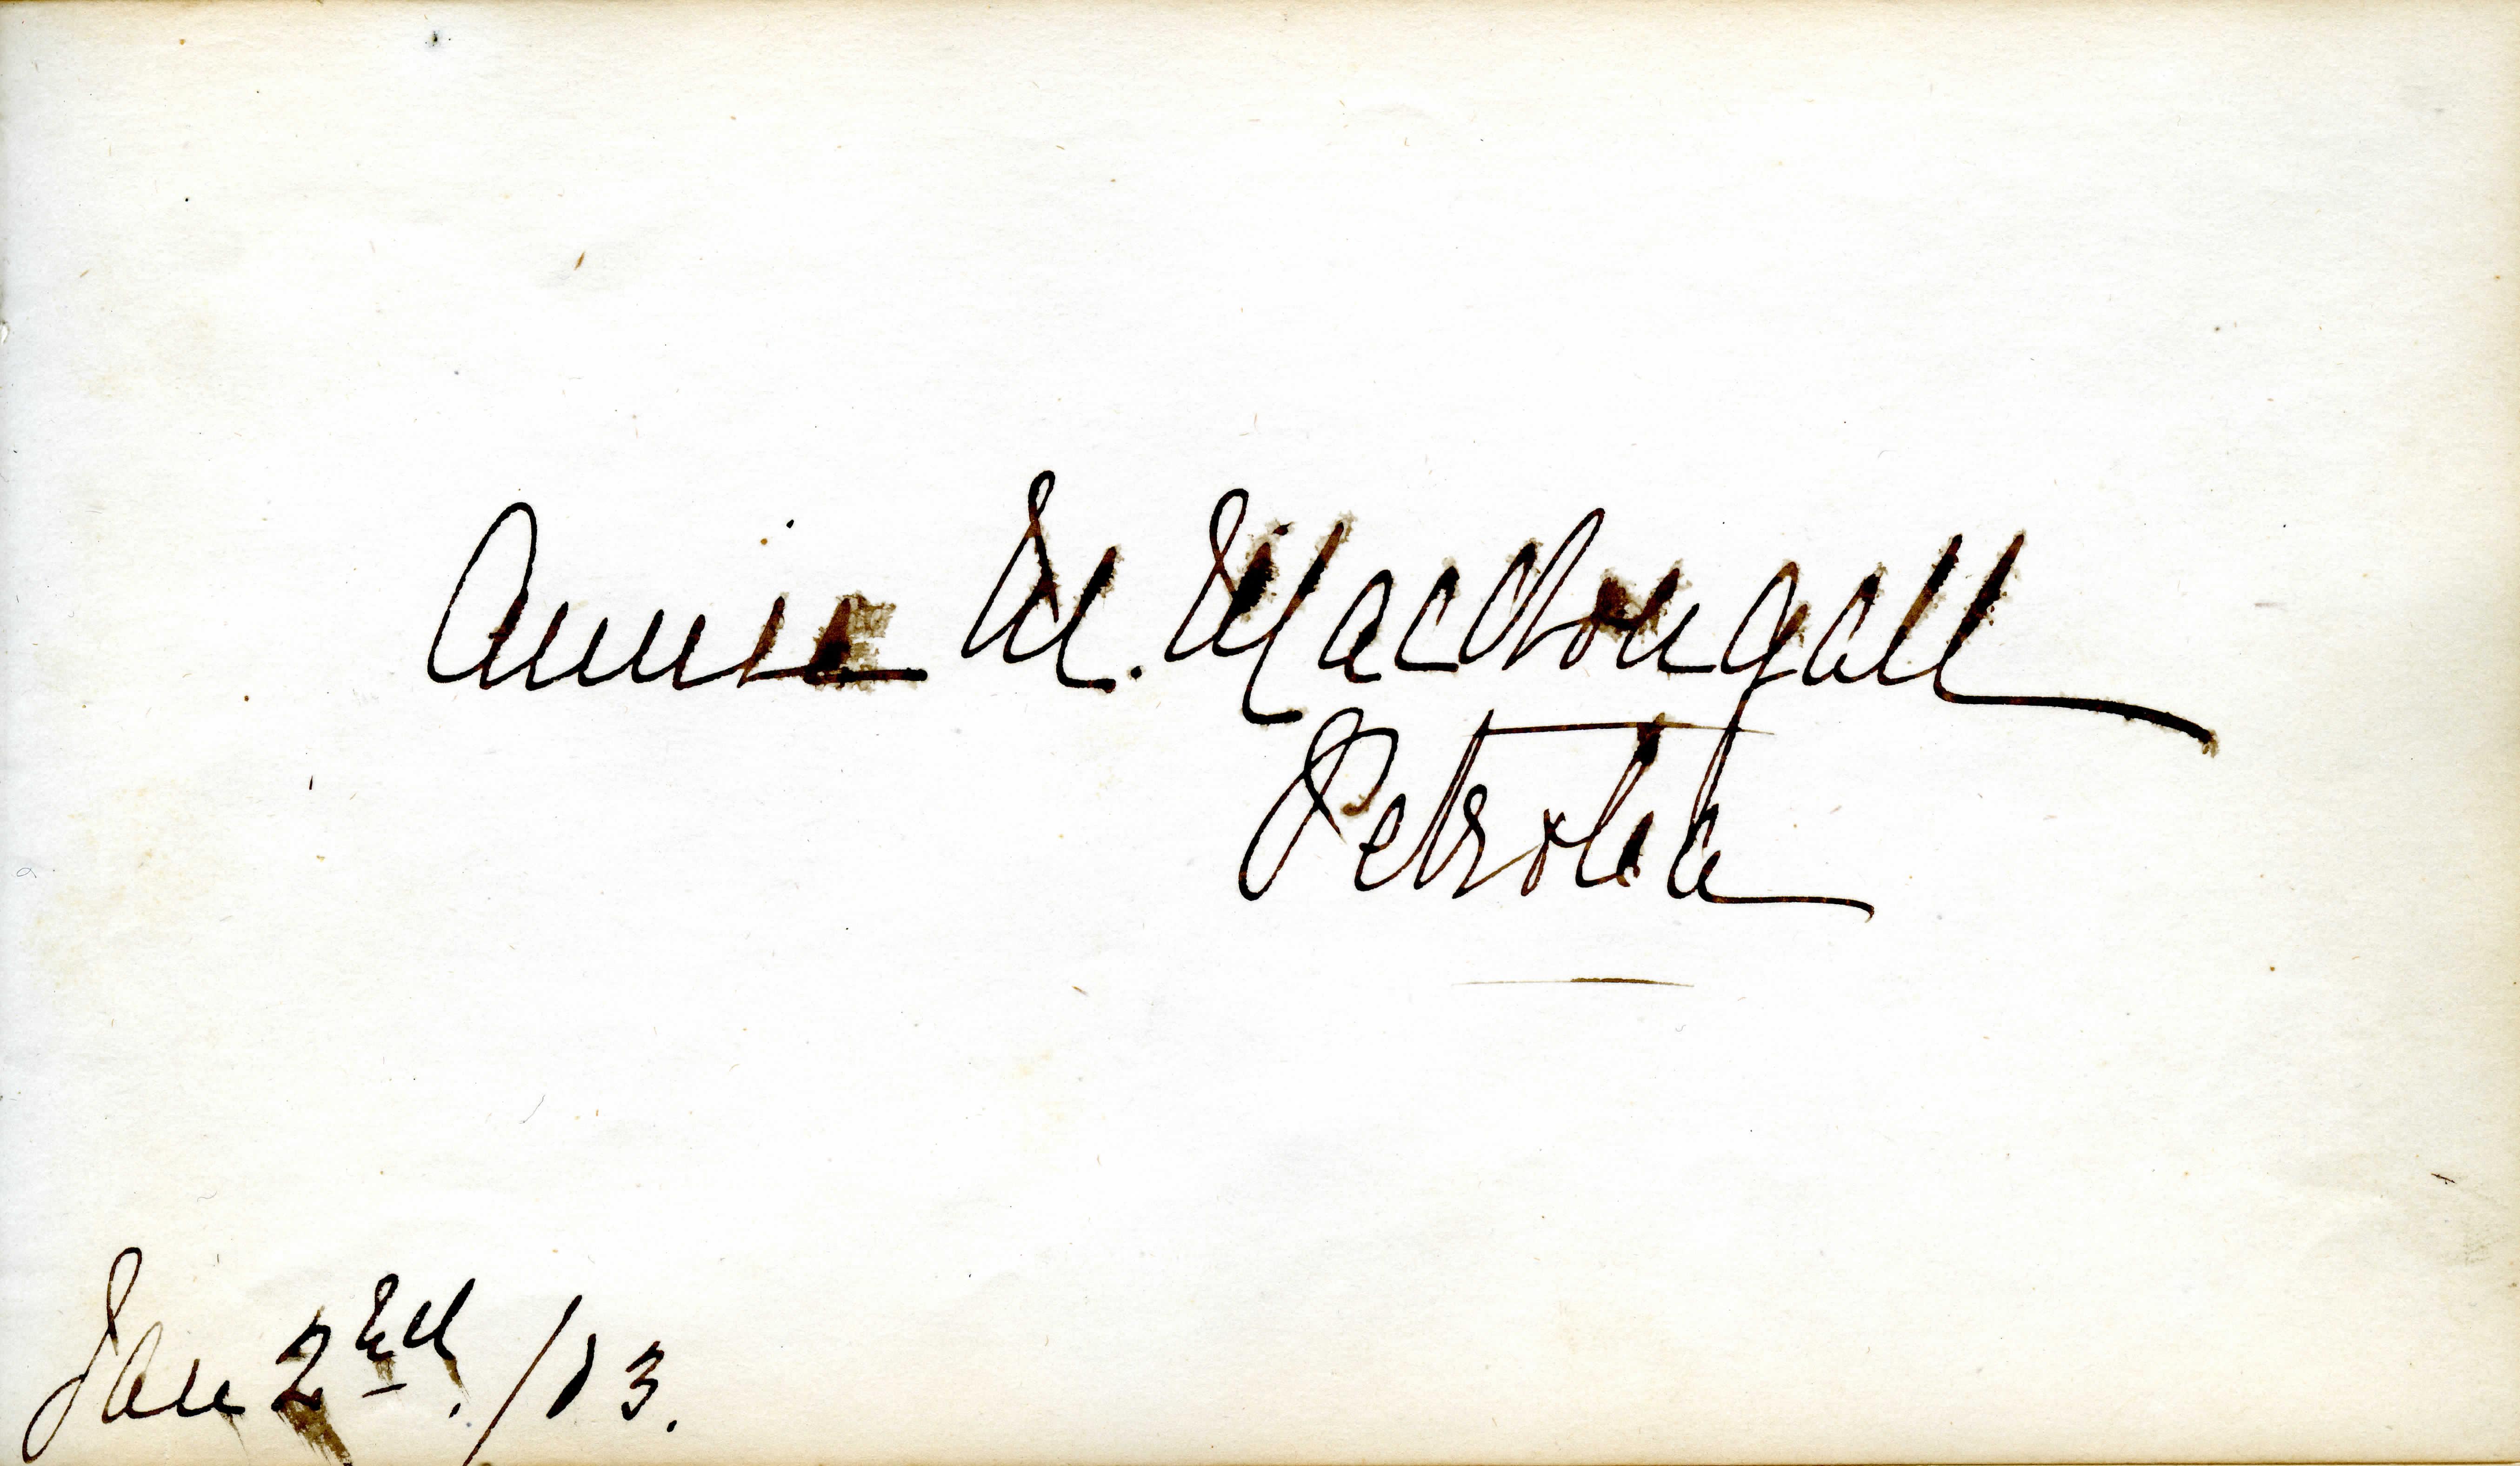 Annie M. MacDougall
Petrolea
Jan 2nd. /13.